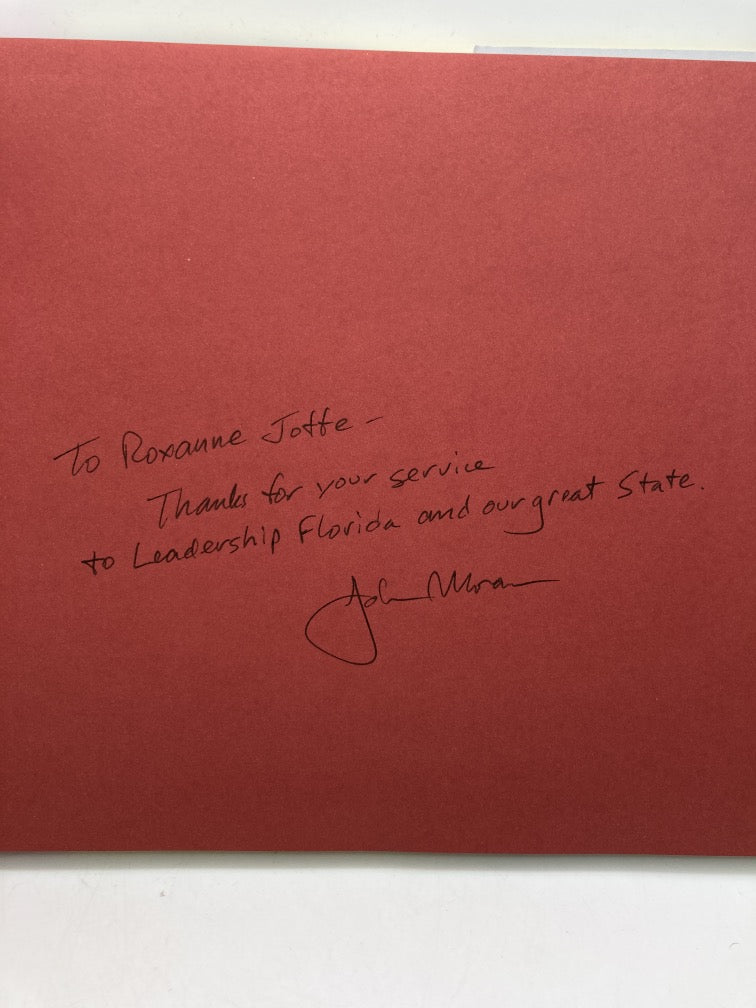 To Roxanne Joffe –
Thanks for your service
to Leadership Florida and our great State.
John Moran